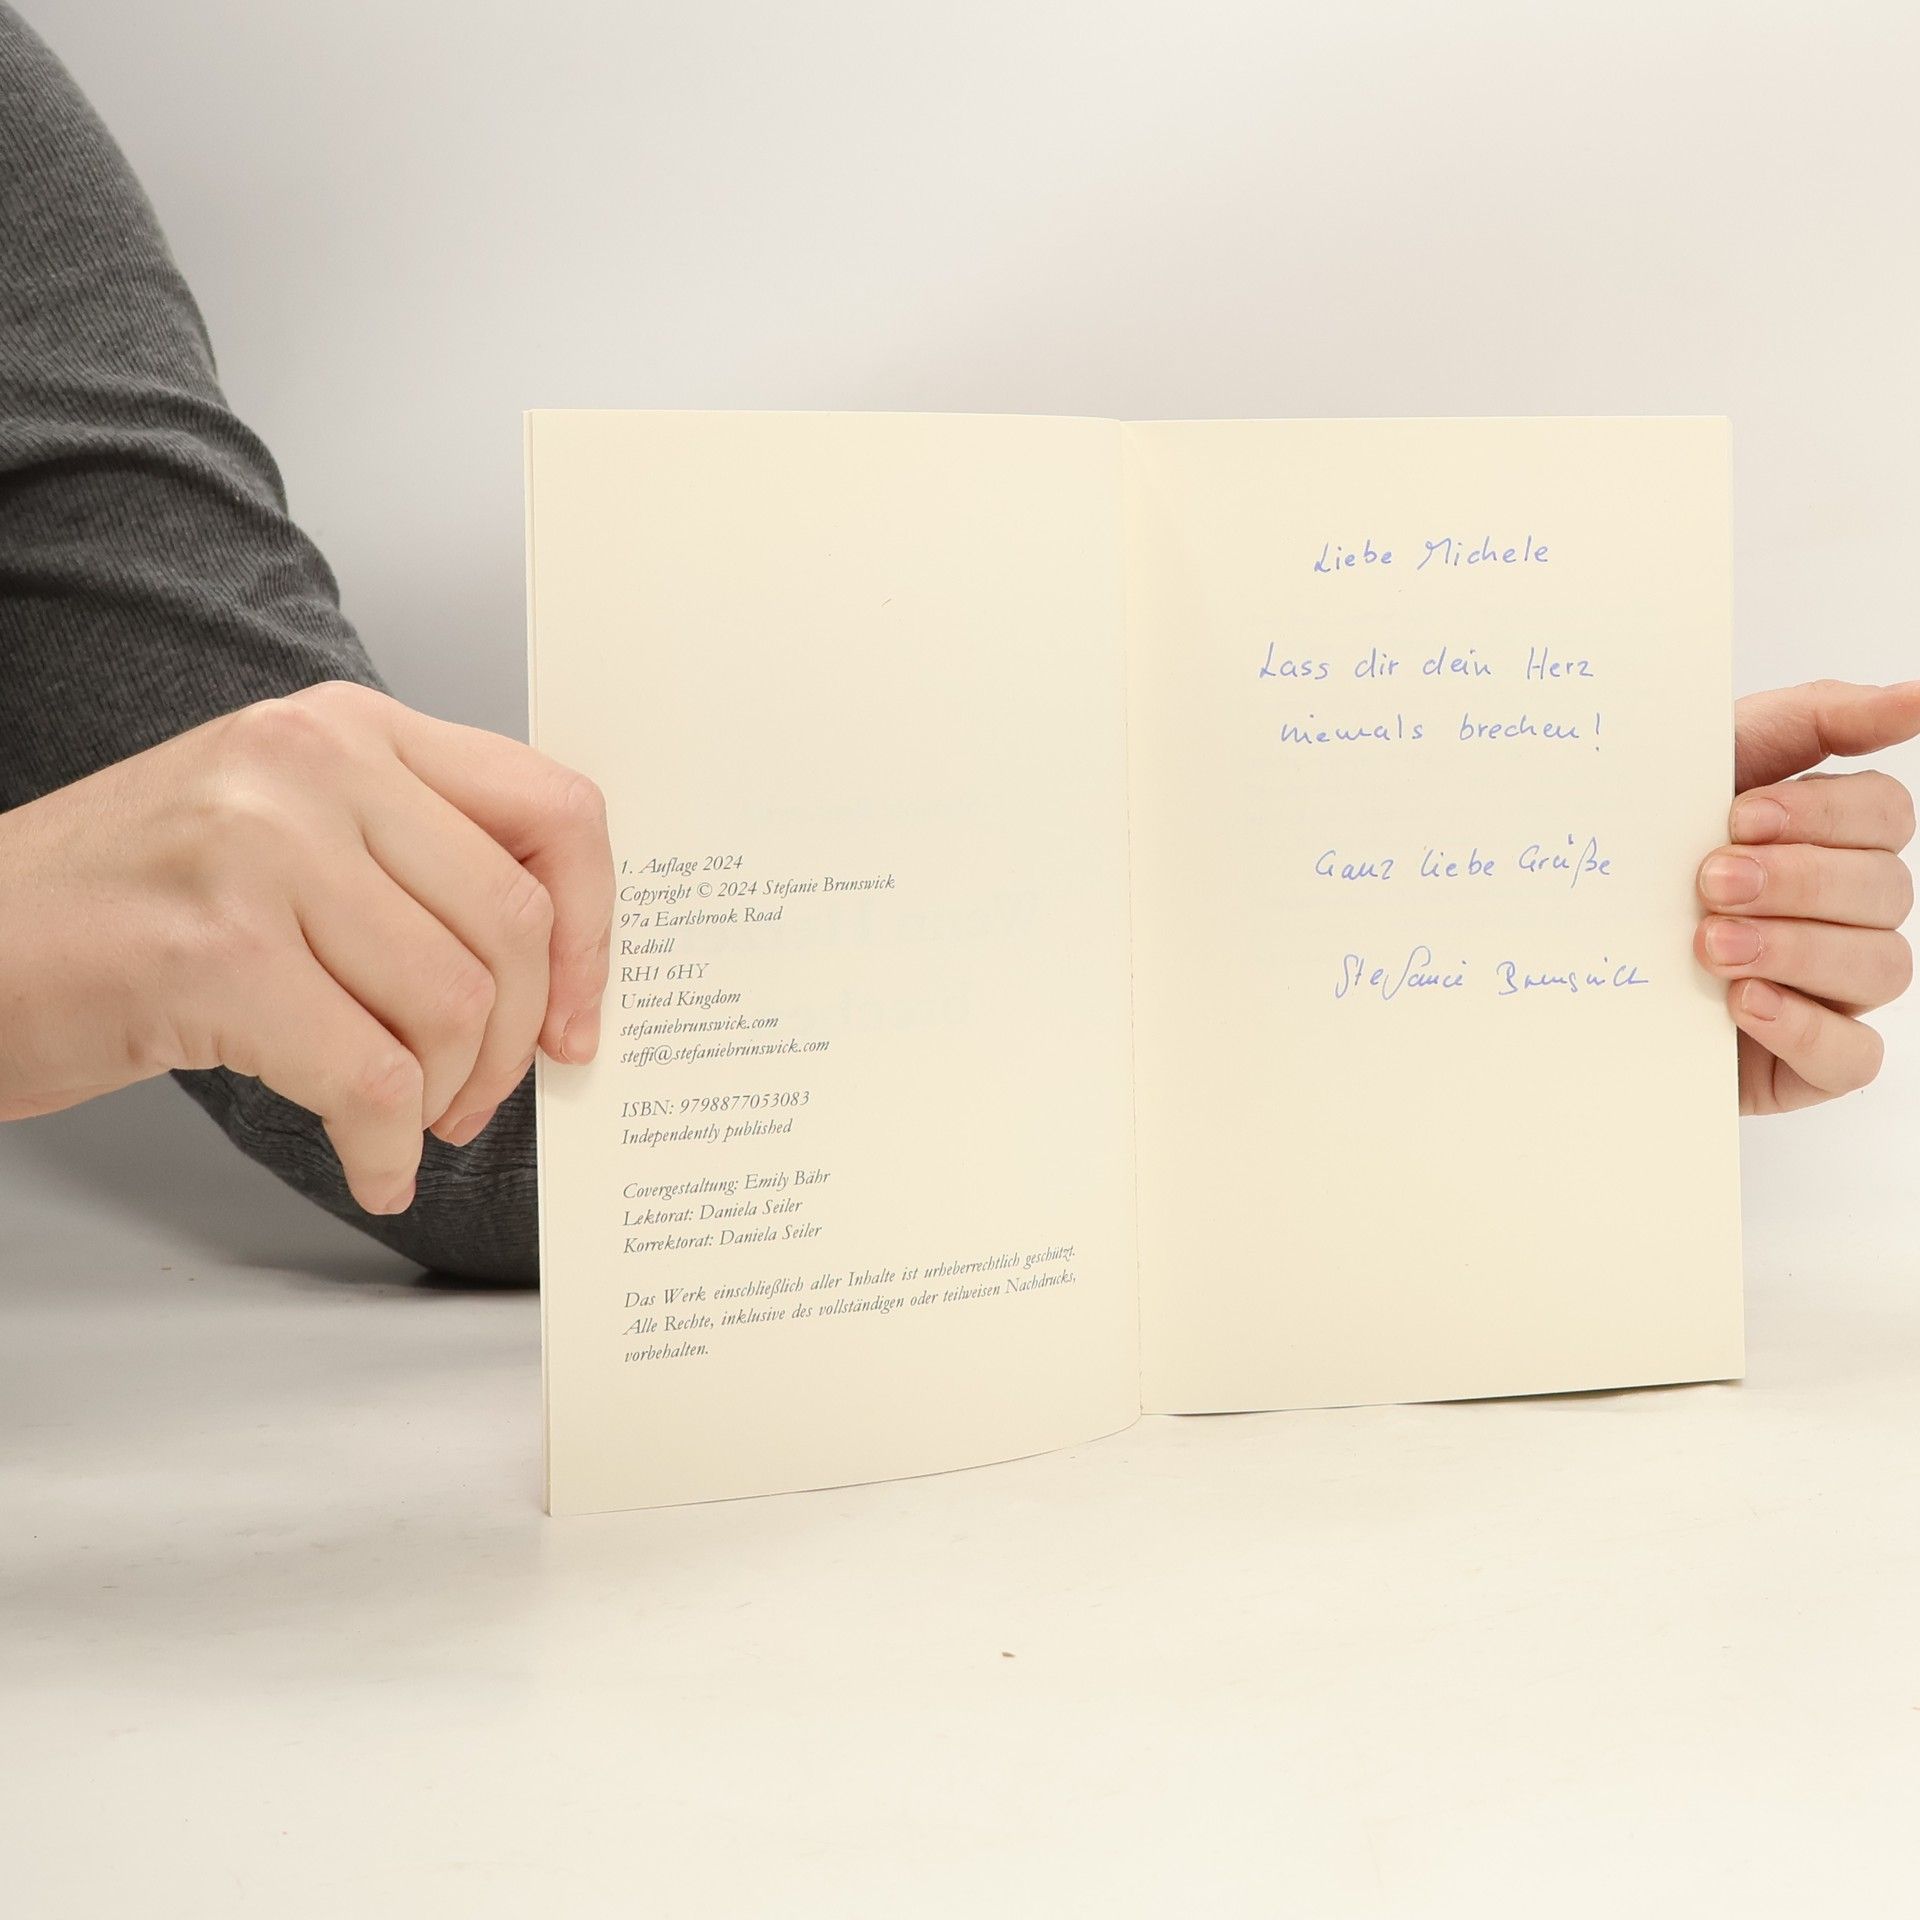 1. Auflage 2024
Copyright © 2024 Stefanie Brunswick
97a Earlsbrook Road
Redhill
RH1 6HY
United Kingdom
stefaniebrunswick.com
steffi@stefaniebrunswick.com
ISBN: 9798877053083
Independently published
Covergestaltung: Emily Bähr
Lektorat: Daniela Seiler
Korrektorat: Daniela Seiler
Das Werk einschließlich aller Inhalte ist urheberrechtlich geschützt.
Alle Rechte, inklusive des vollständigen oder teilweisen Nachdrucks,
vorbehalten.
Liebe Michele
Lass dir dein Herz
niemals brechen!
Ganz liebe Grüße
Stefanie Brunswick